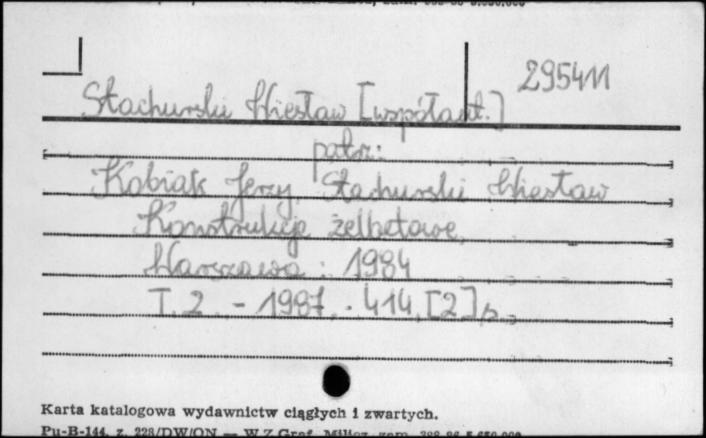 295411
Stachurski Wiesław [współaut.]
patrz:
Kobiak Jerzy, Stachurski Wiesław
Konstrukcje żelbetowe.
Warszawa : 1984
T. 2. - 1987. - 414, [2] s.
Karta katalogowa wydawnictw ciągłych i zwartych.
Pu-B-144, z. 228/DW/ON — W.Z.Graf. Milicz, zam.